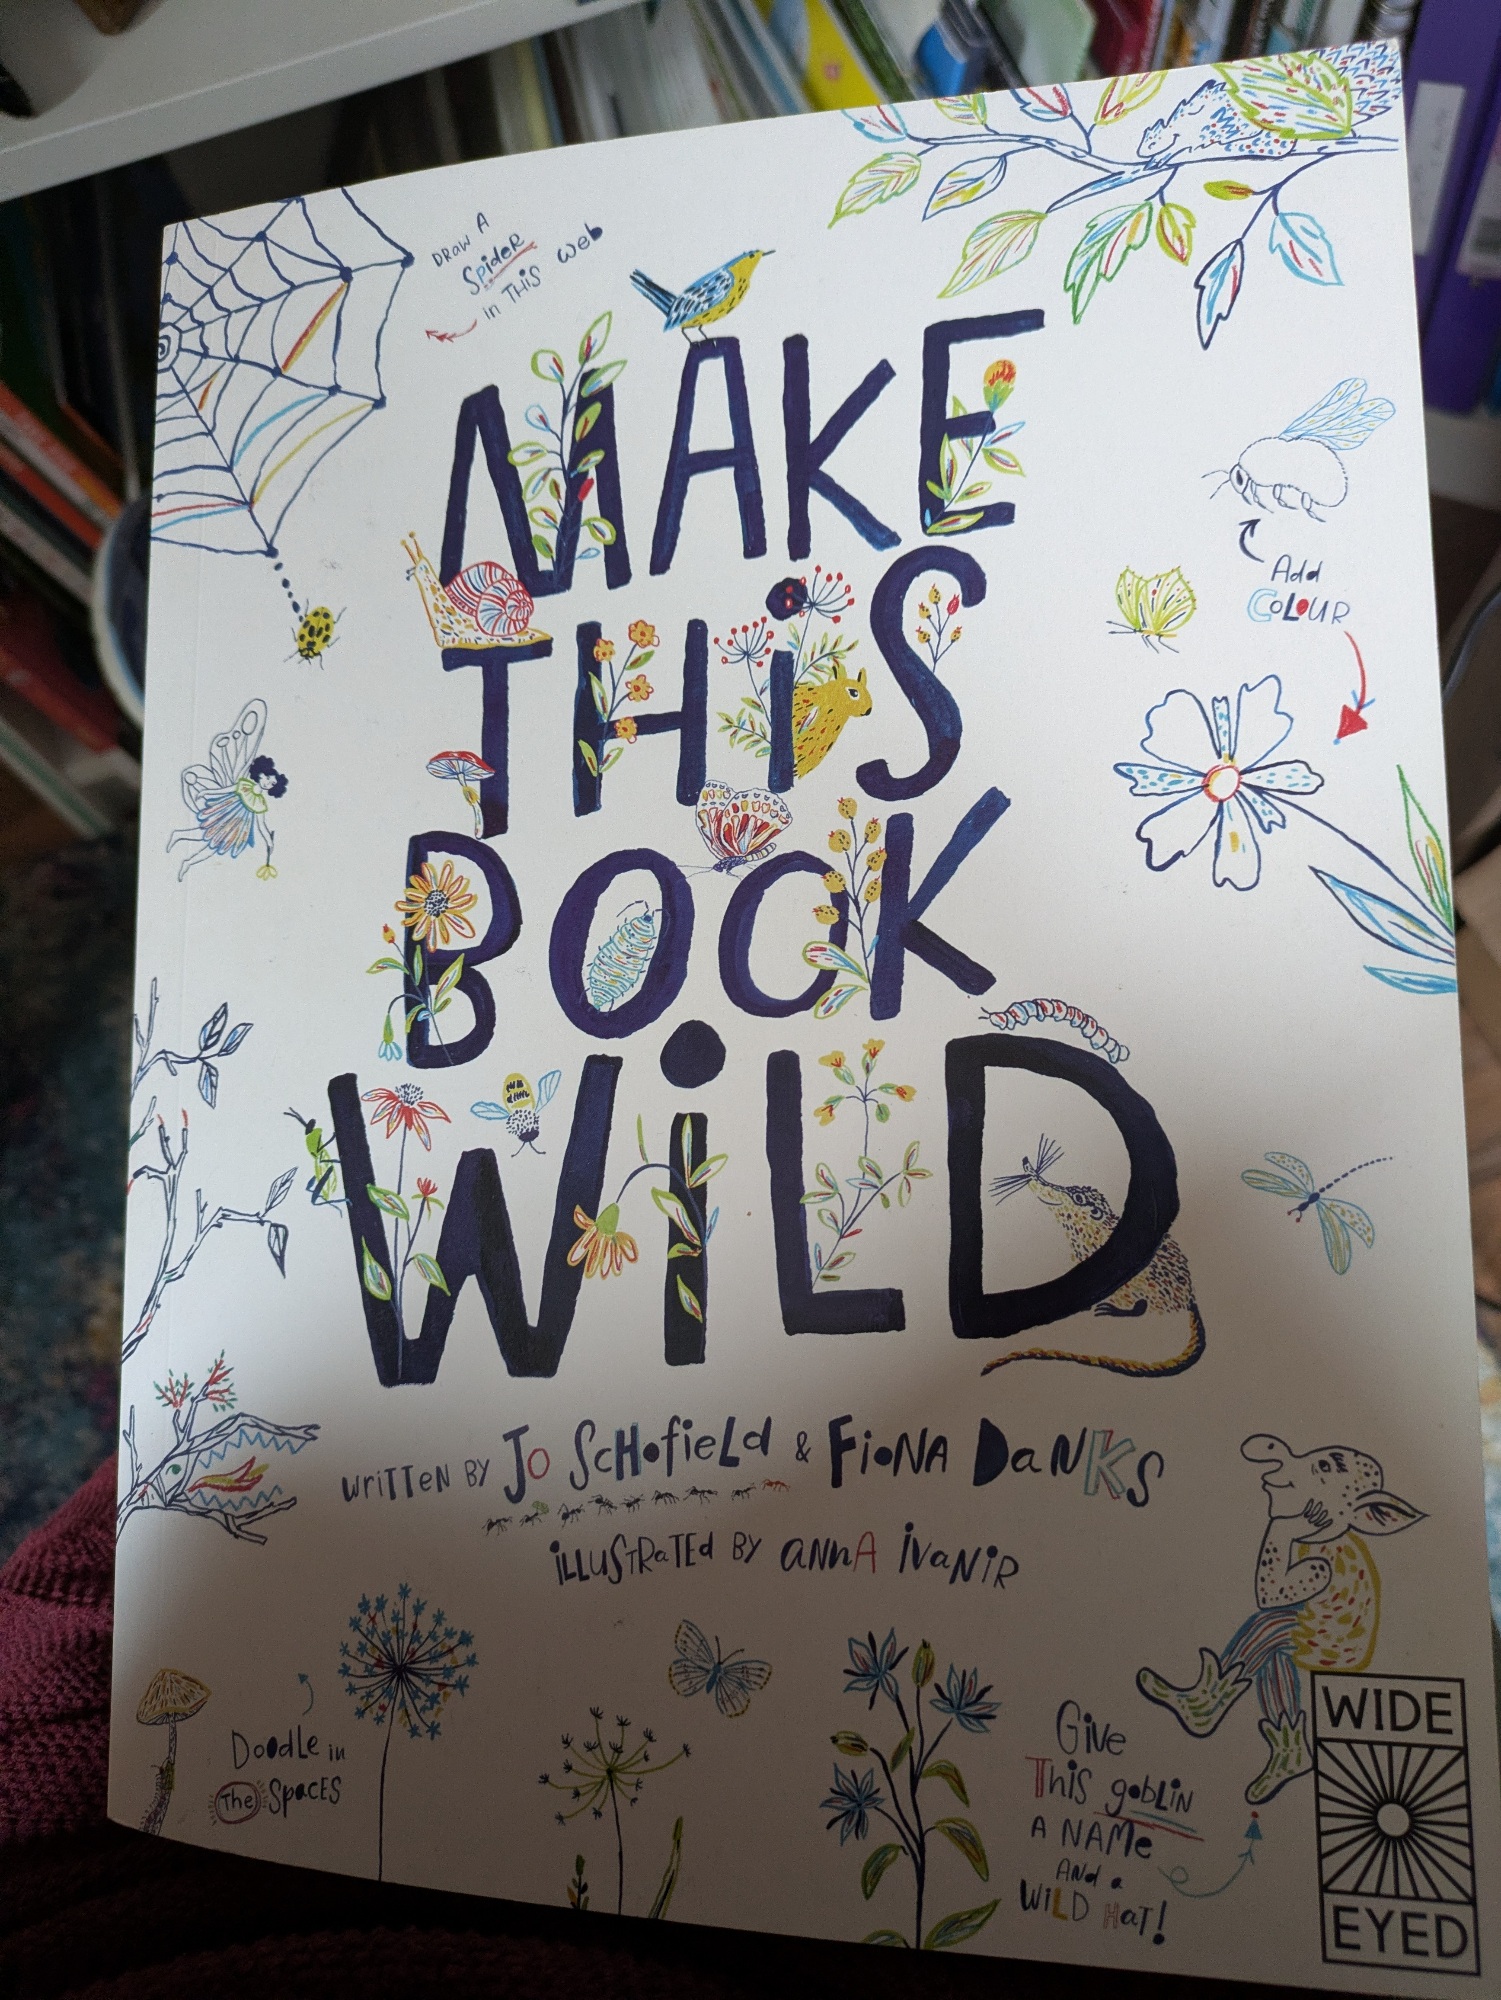 DRAW A
SpideR
in THiS web
MAKE
THiS
BOOK
WiLD
Add
COLOUR
WRiTTeN BY Jo ScHofieLd & FioNA DaNKs
iLLUSTRaTEd BY annA IvaNiR
DoodLe in
The SpacES
Give
This gobLiN
A NAMe
ANd a
WiLD HaT!
WIDE
EYED